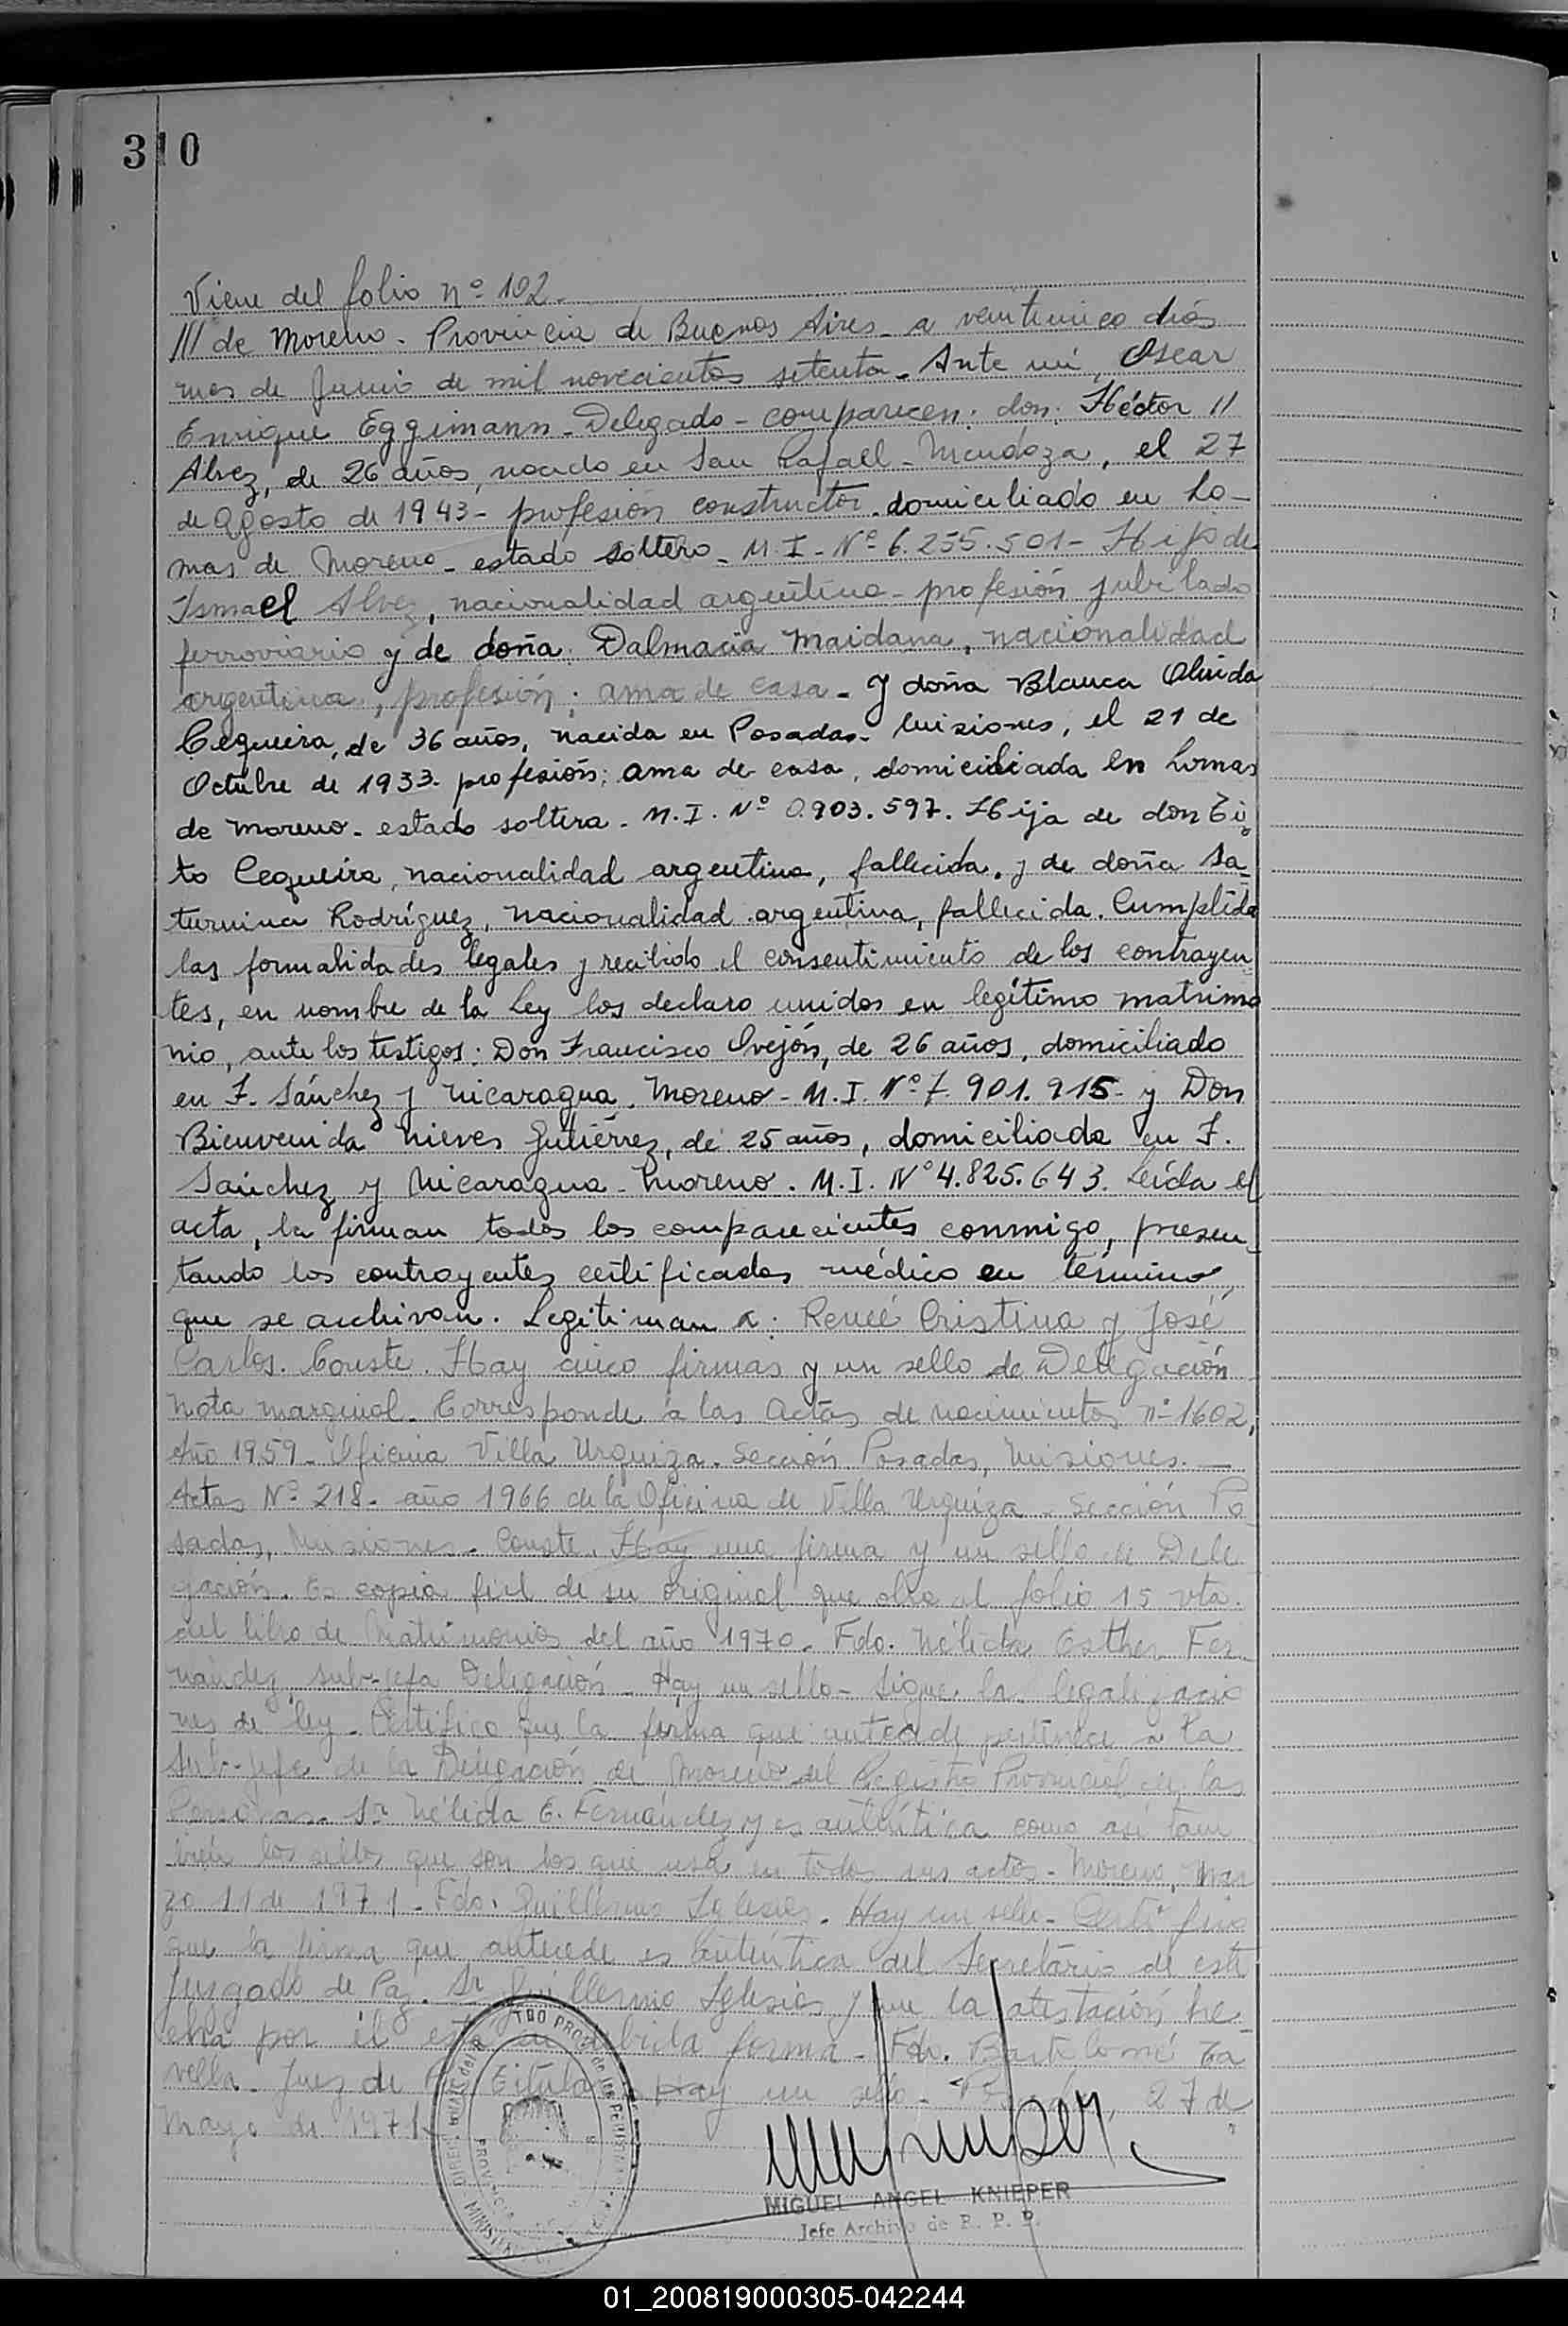 310
Viene del folio nº 102.
/// de Moreno. Provincia de Buenos Aires a veinticinco días
mes de Junio de mil novecientos setenta. Ante mi, Oscar
Enrique Eggimann - Delegado - comparecen: don: Héctor //
Alvez, de 26 años, nacido en San Rafael - Mendoza, el 27
de Agosto de 1943 - profesión constructor. domiciliado en Lo-
mas de Moreno - estado soltero - M.I. Nº 6.255.501 - Hijo de
Ismael Alvez, nacionalidad argentina - profesión jubilado
ferroviario y de doña: Dalmacia Maidana, nacionalidad
argentina, profesión: ama de casa - y doña Blanca Olinda
Cequeira, de 36 años, nacida en Posadas - Misiones, el 21 de
Octubre de 1933. profesión: ama de casa, domiciliada en Lomas
de Moreno - estado soltera - M.I. Nº 0.903.597. Hija de don Ti
to Cequeira, nacionalidad argentina, fallecida, y de doña Sa-
turnina Rodríguez, nacionalidad argentina, fallecida. Cumplida
las formalidades legales y recibido el consentimiento de los contrayen
tes, en nombre de la Ley los declaro unidos en legítimo matrimo
nio, ante los testigos: Don Francisco Ovejón, de 26 años, domiciliado
en F. Sánchez y Nicaragua. Moreno - M.I. Nº 7.901.915 - y Don
Bienvenida Nieves Gutiérrez, de 25 años, domiciliada en F.
Sánchez y Nicaragua - Moreno. M.I. Nº 4.825.643. Leída el
acta, la firman todos los comparecientes conmigo, presen-
tando los contrayentes certificados médico en término,
que se archivan. Legitiman a: Reneé Cristina y José
Carlos. Conste. Hay cinco firmas y un sello de Delegación
Nota marginal. Corresponde a las Actas de nacimientos nº 1602,
Año 1959 - Oficina Villa Urquiza. Sección Posadas, Misiones. —
Actas Nº 218 - año 1966 de la Oficina de Villa Urquiza - Sección Po
sadas, Misiones - Conste. Hay una firma y un sello de Dele
gación. Es copia fiel de su original que obra al folio 15 vta.
del libro de Matrimonios del año 1970 - Fdo. Nélida Esther Fer
nández, sub-jefa Delegación - Hay un sello - Sigue la legalizacio
nes de ley - Certifico que la firma que antecede pertenece a la
Sub-jefe de la Delegación de Moreno del Registro Provincial de las
Personas - Sr. Nélida E. Fernández y es auténtica como así tam
bién los sellos que son los que usa en todos sus actos - Moreno, Mar
zo 11 de 1971 - Fdo. Guillermo Iglesias. Hay un sello - Certifico
que la firma que antecede es auténtica del Secretario de este
Juzgado de Paz. Sr. Guillermo Iglesias y que la atestación he-
cha por él está en debida forma - Fdo. Bartolomé Ta
vella. Juez de Paz Titular Hay un sello - Posadas, 27 de
Mayo de 1971.
MIGUEL ANGEL KNIEPER
Jefe Archivo de R. P. P.
01_200819000305-042244